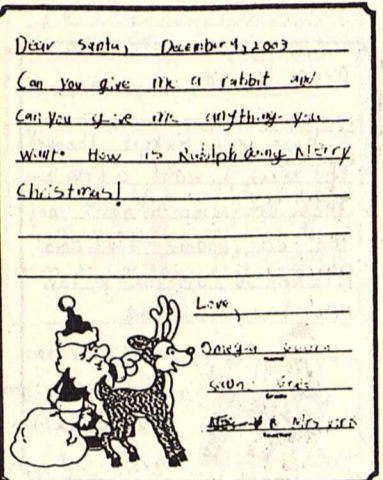 Dear Santa, December 4, 2003
Can you give me a rabbit and
Can you give me anything you
want. How is Rudolph doing Merry
Christmas!
Love,
Omega
Name
Grade
Mrs.
Teacher